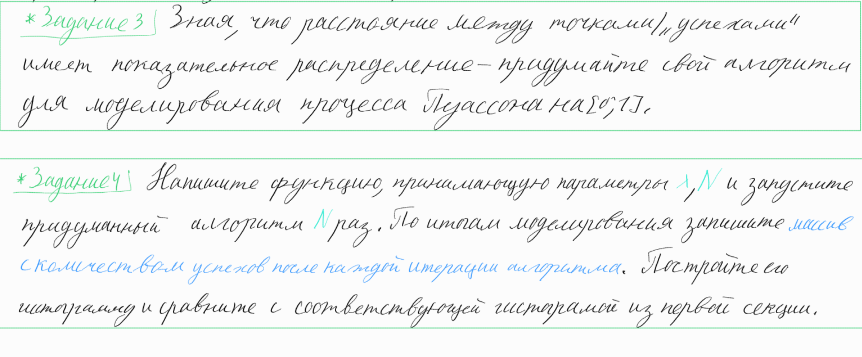 *Задание 3 Зная, что расстояние между точками/„успехами“
имеет показательное распределение – придумайте свой алгоритм
для моделирования процесса Пуассона на [0,1].
*Задание 4 Напишите функцию, принимающую параметры λ, N и запустите
придуманный алгоритм N раз. По итогам моделирования запишите массив
с количеством успехов после каждой итерации алгоритма. Постройте его
гистограмму и сравните с соответствующей гистограмой из первой секции.